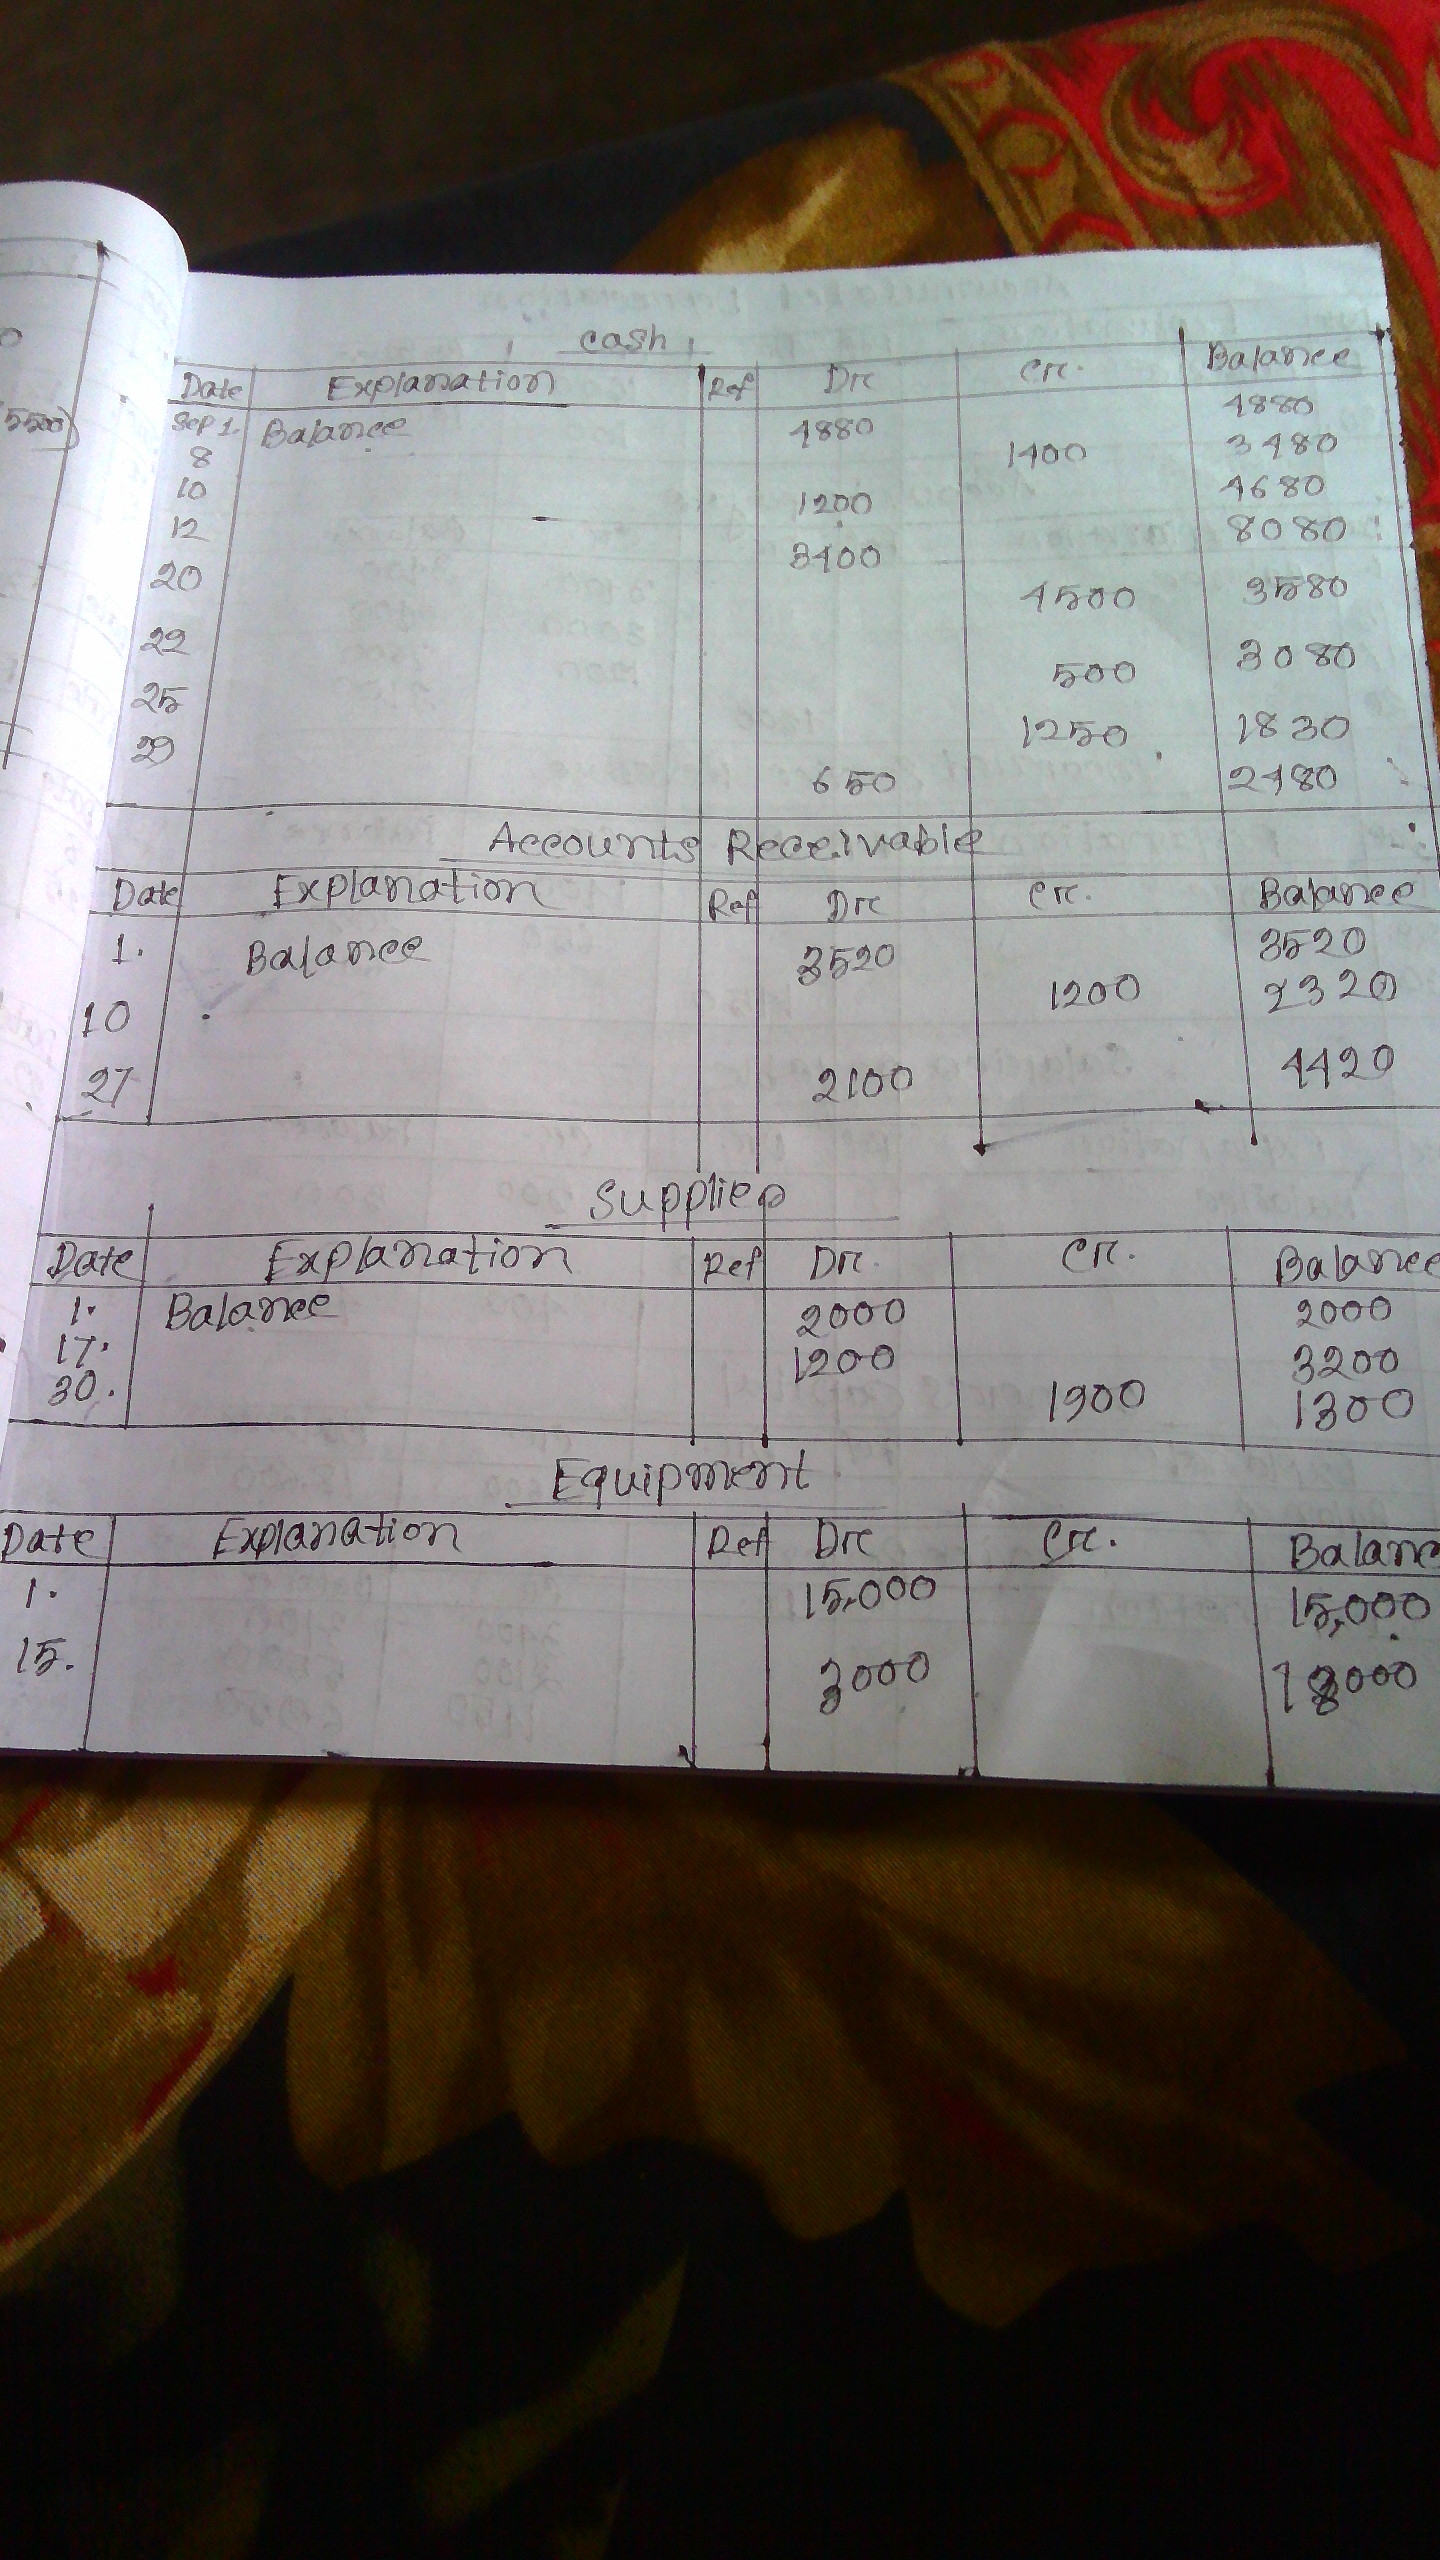 5500)
Cash
Date Explanation Ref Dr Cr. Balance
Sep 1. Balance 4880 4880
8 1400 3480
10 1200 4680
12 3400 8080
20 4500 3580
22 500 3080
25 1250 1830
29 650 2480
Accounts Receivable
Date Explanation Ref Dr Cr. Balance
1. Balance 3520 3520
10 1200 2320
27 2100 4420
Supplies
Date Explanation Ref Dr. Cr. Balance
1. Balance 2000 2000
17. 1200 3200
30. 1900 1300
Equipment
Date Explanation Ref Dr Cr. Balanc
1. 15,000 15,000
15. 3000 18000